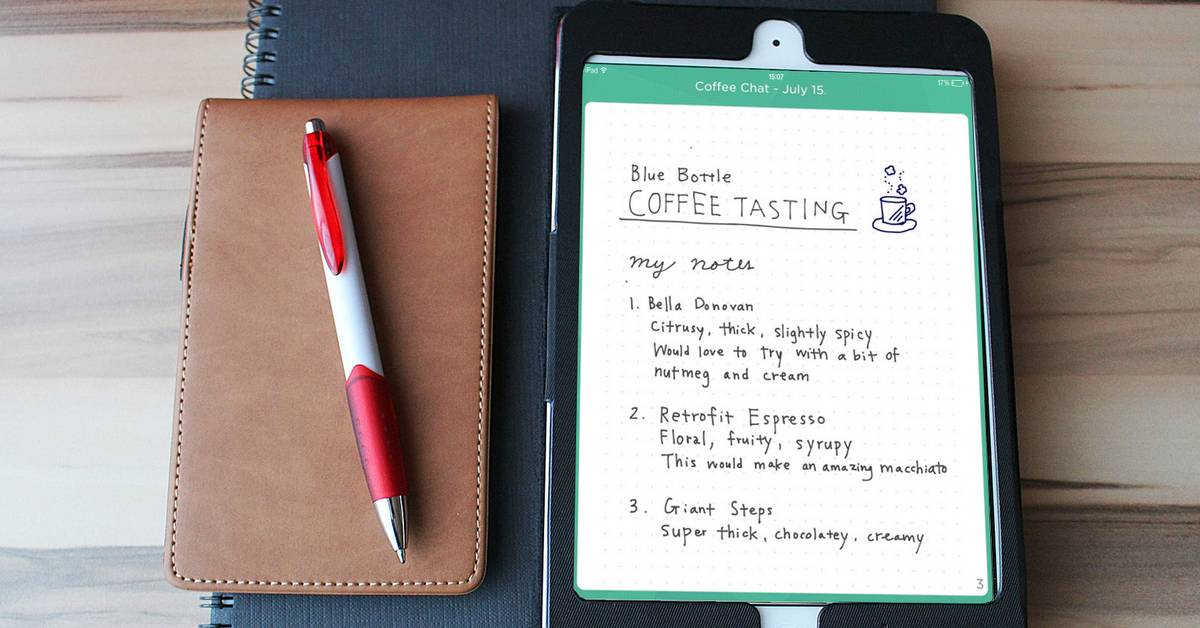 iPad
15:07
17%
Coffee Chat - July 15
Blue Bottle
COFFEE TASTING
my notes
1. Bella Donovan
Citrusy, thick, slightly spicy
Would love to try with a bit of
nutmeg and cream
2. Retrofit Espresso
Floral, fruity, syrupy
This would make an amazing macchiato
3. Giant Steps
Super thick, chocolatey, creamy
3